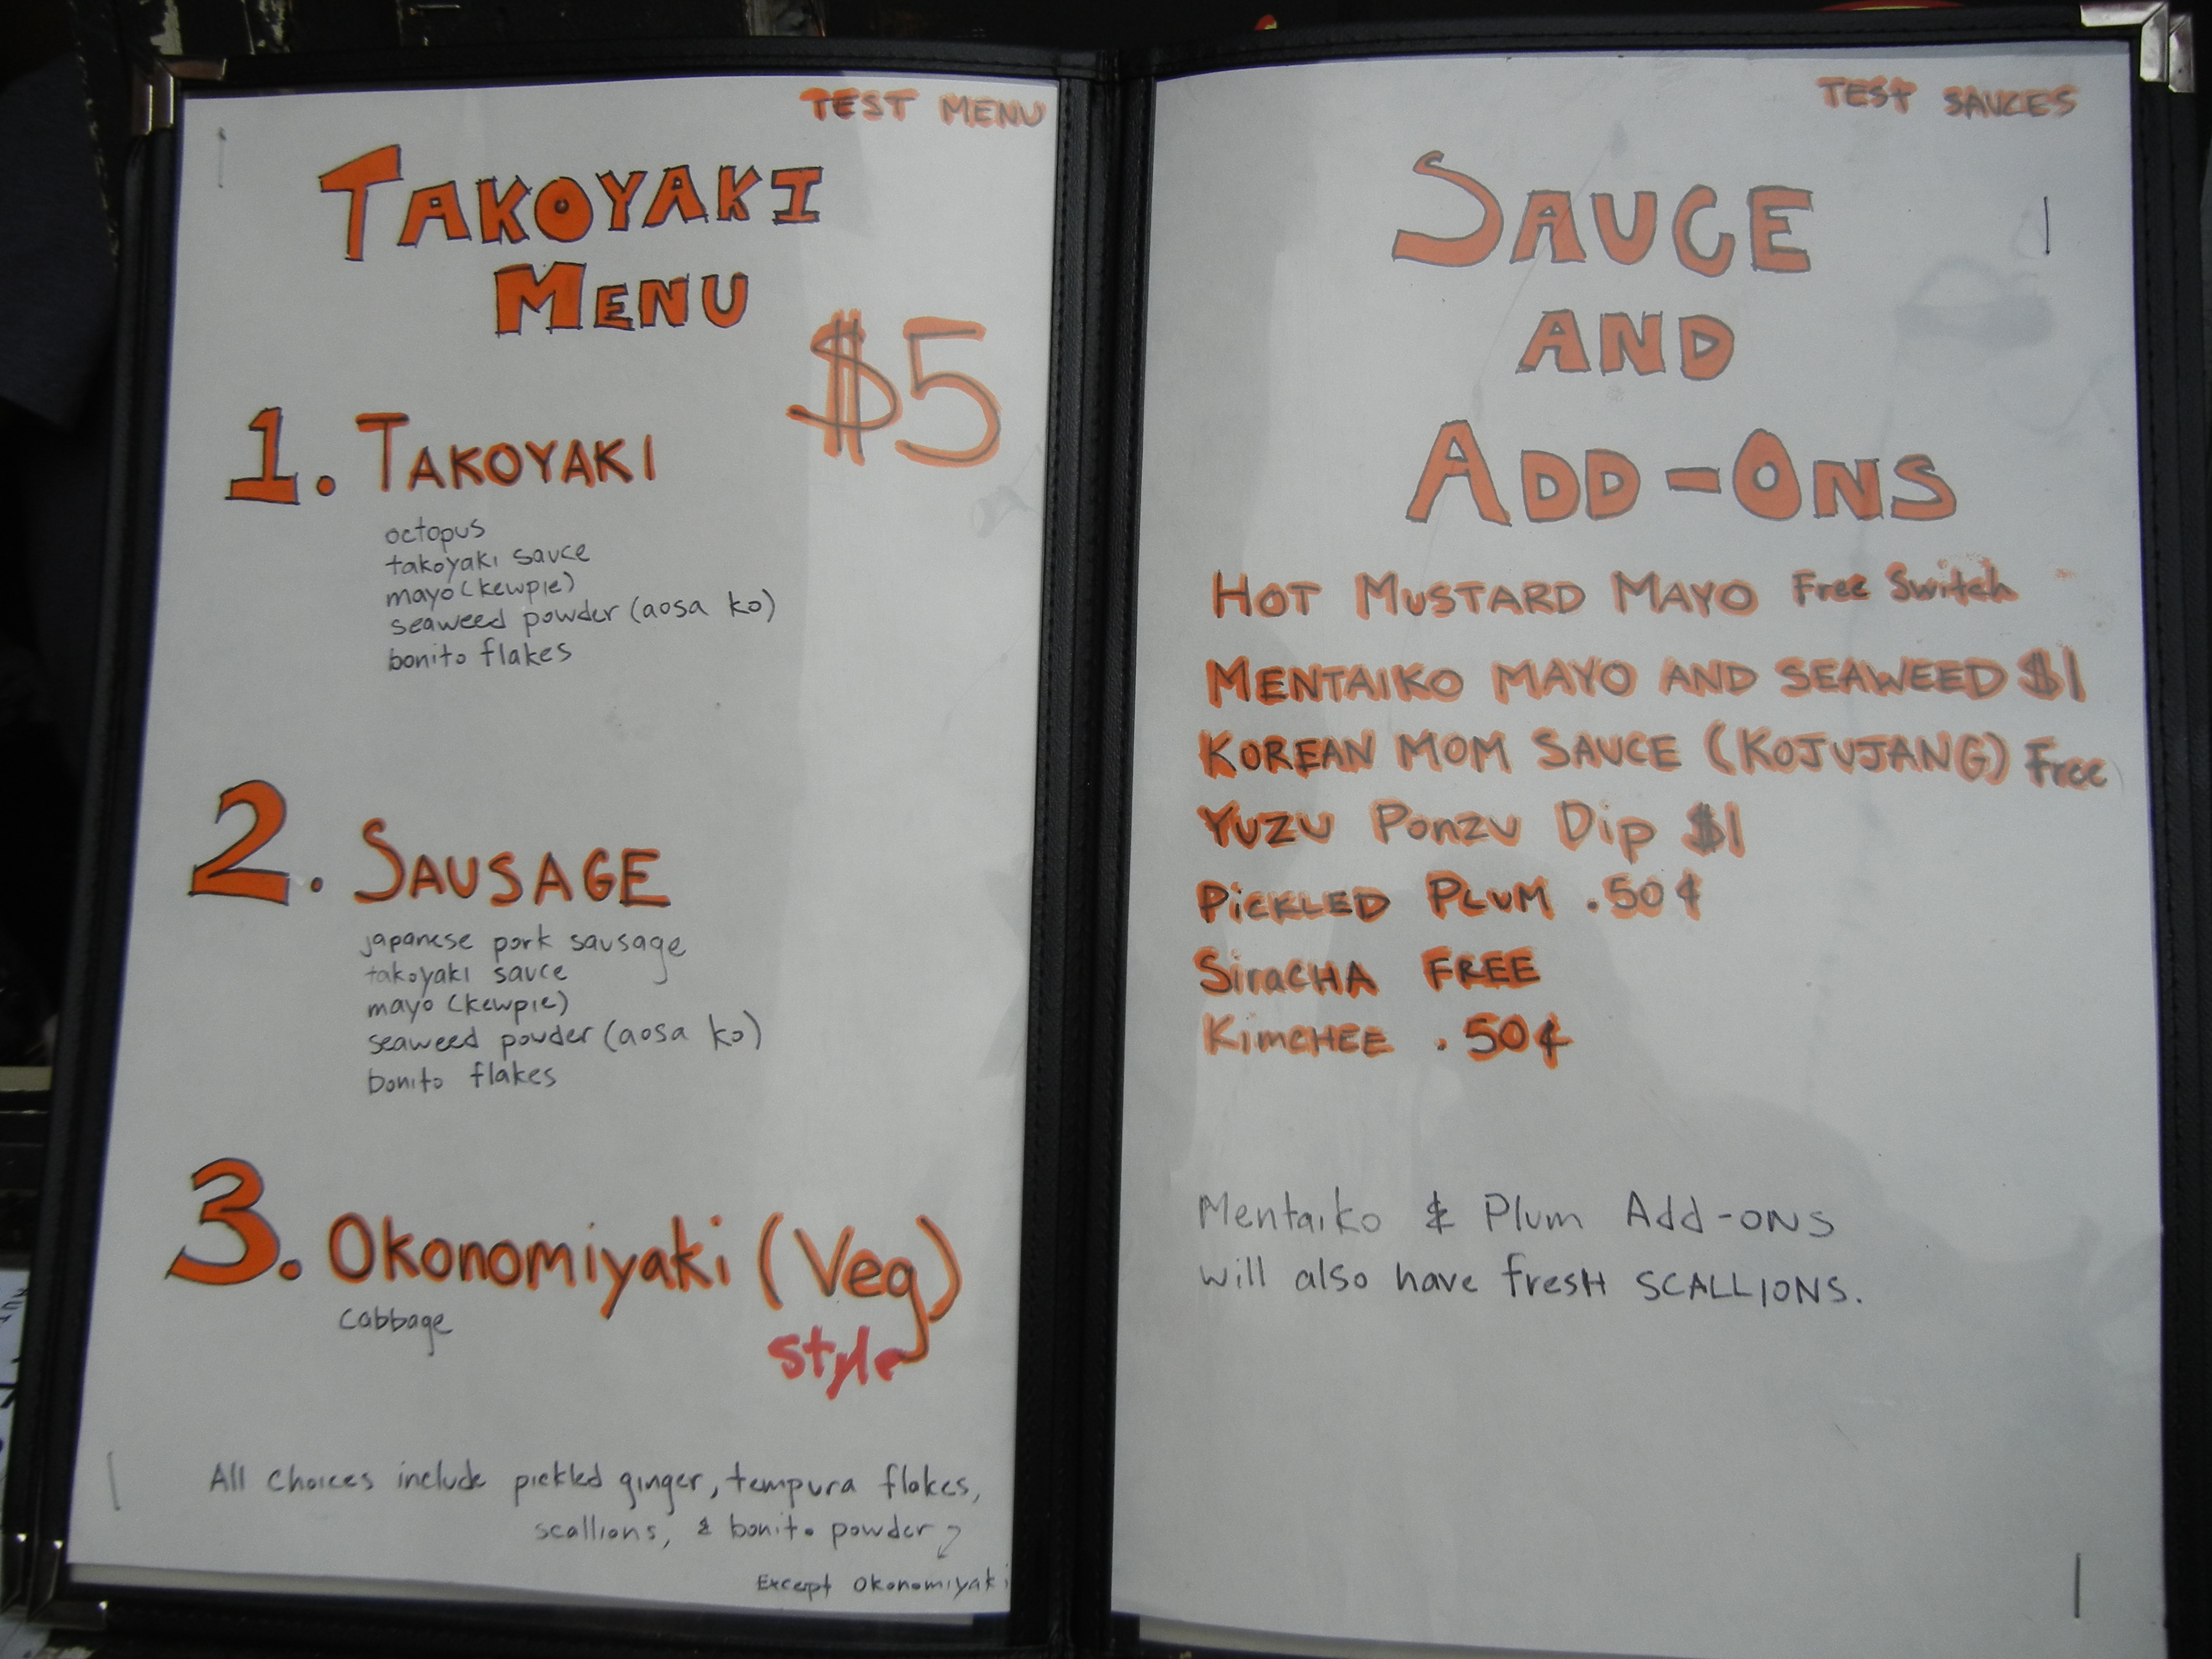 TEST MENU
TAKOYAKI
MENU
$5
1. TAKOYAKI
octopus
takoyaki sauce
mayo (kewpie)
seaweed powder (aosa ko)
bonito flakes
2. SAUSAGE
japanese pork sausage
takoyaki sauce
mayo (kewpie)
seaweed powder (aosa ko)
bonito flakes
3. Okonomiyaki (Veg)
style
cabbage
All choices include pickled ginger, tempura flakes,
scallions, & bonito powder
Except Okonomiyaki
TEST SAUCES
SAUCE
AND
ADD-ONS
HOT MUSTARD MAYO Free Switch
MENTAIKO MAYO AND SEAWEED $1
KOREAN MOM SAUCE (KOJUJANG) Free
YUZU Ponzu Dip $1
PiCKLED PLUM .50¢
SiraCHA FREE
KimCHEE .50¢
Mentaiko & Plum Add-ONS
will also have fresH SCALLIONS.